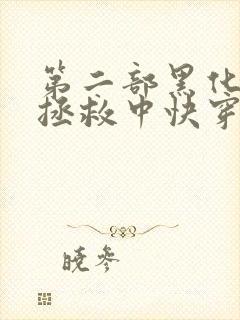 第二部黑化
拯救中快穿
晓参